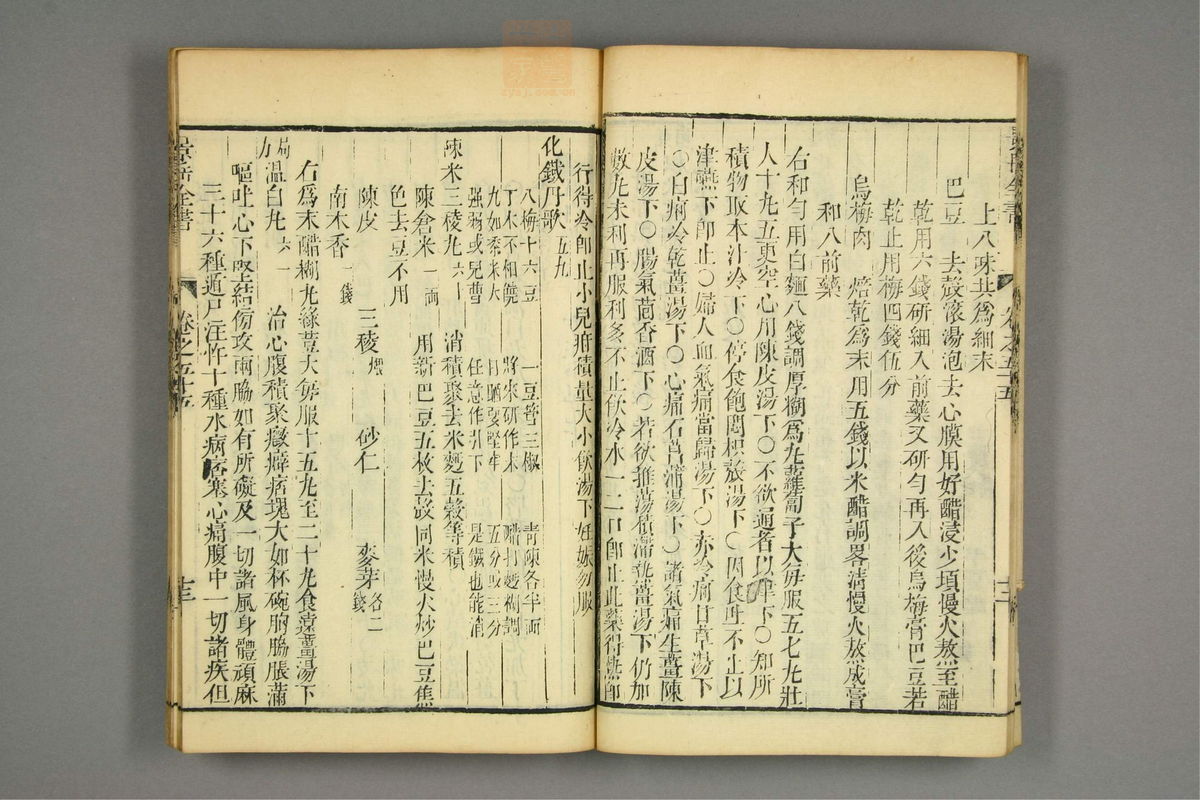 上八味共爲細末
巴豆 去殼滾湯泡去心膜用好醋浸少頃慢火熬至醋
乾用六錢研細入前藥又研勻再入後烏梅膏巴豆若
乾止用梅四錢伍分
烏梅肉 焙乾爲末用五錢以米醋調畧清慢火熬成膏
和入前藥
右和勻用白麵八錢調厚糊爲丸蘿蔔子大每服五七丸壯
人十丸五更空心用陳皮湯下○不欲通者以津下○知所
積物取本汁冷下○停食飽悶枳殼湯下○因食吐不止以
津嚥下卽止○婦人血氣痛當歸湯下○赤冷痢甘草湯下
○白痢冷乾薑湯下○心痛石菖蒲湯下○諸氣痛生薑陳
皮湯下○腸氣茴香酒下○若欲推蕩積滯熱薑湯下仍加
數丸未利再服利多不止飲冷水一二口卽止此藥得熱卽
行得冷卽止小兒疳積量大小飲湯下妊娠勿服
化鐵丹歌 五九
八梅十六豆 一豆管三椒 青陳各半兩
丁木不相饒 將來研作末 醋打麪糊調
九如黍米大 日曬要堅牢 五分或三分
強弱或兒曹 任意作引下 是鐵也能消
陳米三稜丸 六十 消積聚去米麪五穀等積
陳倉米 一兩 用新巴豆五枚去殼同米慢火炒巴豆焦
色去豆不用
陳皮 三稜 煨 砂仁 麥芽 各二錢
南木香 一錢
右爲末醋糊丸綠荳大每服十五丸至二十丸食遠薑湯下
局方溫白丸 六一 治心腹積聚癥癖痞塊大如杯碗胸脇脹滿
嘔吐心下堅結傍攻兩脇如有所礙及一切諸風身體頑麻
三十六種遁尸注忤十種水病痞塞心痛腹中一切諸疾但
景岳全書
卷之五十五
十三